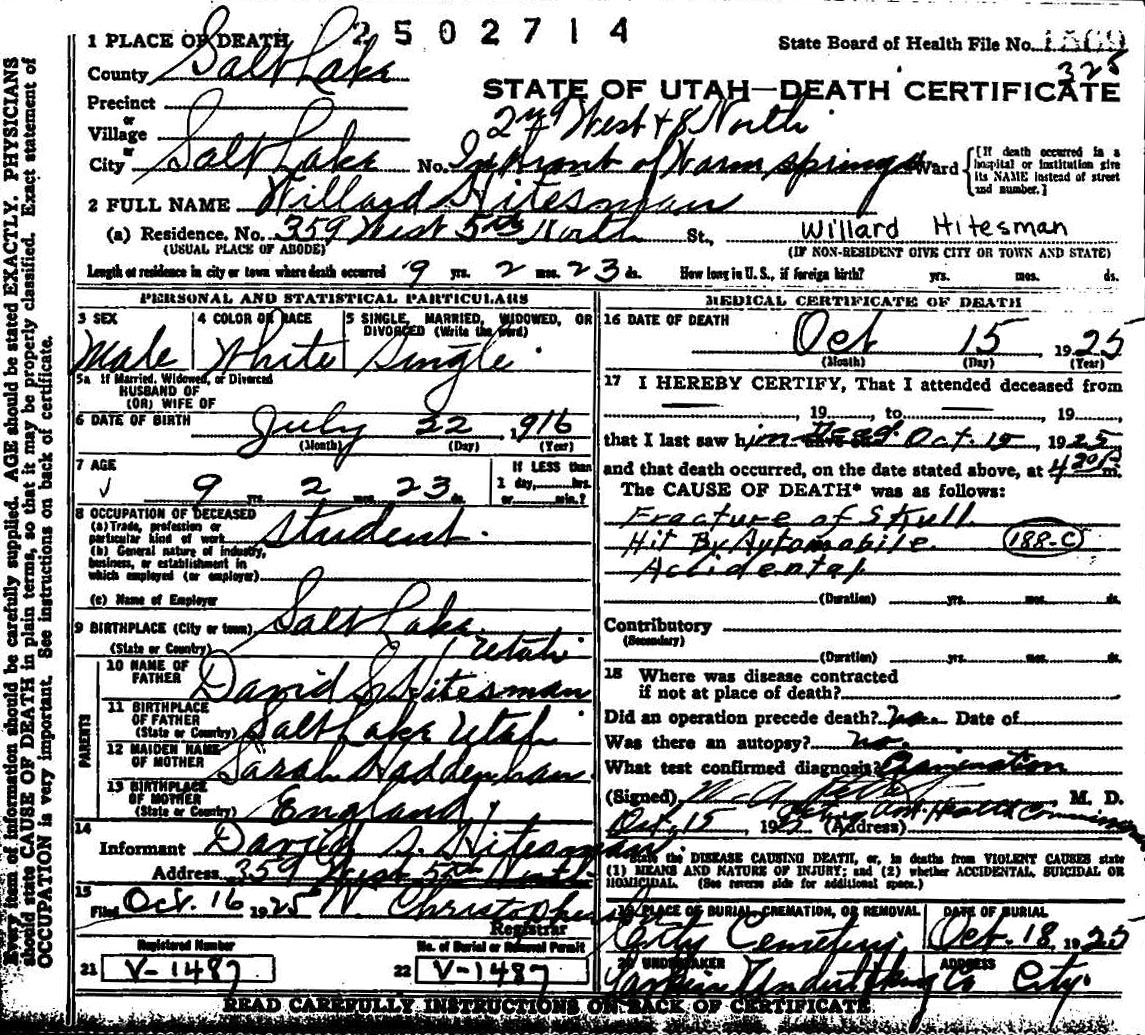 2502714
1 PLACE OF DEATH
State Board of Health File No.
325
County Salt Lake
STATE OF UTAH—DEATH CERTIFICATE
Precinct
or
Village
2nd West + 8 North
or
City Salt Lake No. In front of Warm springs Ward
[If death occurred in a hospital or institution give its NAME instead of street and number.]
2 FULL NAME Willard Hitesman
(a) Residence. No. 359 West 5th North St., Willard Hitesman
(USUAL PLACE OF ABODE) (IF NON-RESIDENT GIVE CITY OR TOWN AND STATE)
Length of residence in city or town where death occurred 9 yrs. 2 mos. 23 ds. How long in U. S., if foreign birth? yrs. mos. ds.
PERSONAL AND STATISTICAL PARTICULARS
3 SEX 4 COLOR OR RACE 5 SINGLE, MARRIED, WIDOWED, OR DIVORCED (Write the word)
Male White Single
5a If Married, Widowed, or Divorced
HUSBAND OF
(OR) WIFE OF
6 DATE OF BIRTH July 22 1916
(Month) (Day) (Year)
7 AGE
9 yrs. 2 mos. 23 ds.
If LESS than 1 day, hrs. or min.?
8 OCCUPATION OF DECEASED
(a) Trade, profession or particular kind of work Student
(b) General nature of industry, business, or establishment in which employed (or employer)
(c) Name of Employer
9 BIRTHPLACE (City or town) Salt Lake
(State or Country) Utah
PARENTS
10 NAME OF FATHER David S Hitesman
11 BIRTHPLACE OF FATHER (State or Country) Salt Lake Utah
12 MAIDEN NAME OF MOTHER Sarah
13 BIRTHPLACE OF MOTHER (State or Country) England
14
Informant David S. Hitesman
Address 359 West 5th North
15
Filed Oct. 16 1925
Registrar
Registered Number No. of Burial or Removal Permit
21 V-1487 22 V-1487
MEDICAL CERTIFICATE OF DEATH
16 DATE OF DEATH
Oct 15, 1925
(Month) (Day) (Year)
17 I HEREBY CERTIFY, That I attended deceased from
, 19 , to , 19
that I last saw him Dead Oct. 15 1925
and that death occurred, on the date stated above, at m.
The CAUSE OF DEATH* was as follows:
Fracture of Skull
Hit By Automobile. 188-C
Accidental
(Duration) yrs. mos. ds.
Contributory
(Secondary)
(Duration) yrs. mos. ds.
18 Where was disease contracted
if not at place of death?
Did an operation precede death? no Date of
Was there an autopsy? no.
What test confirmed diagnosis? Examination
(Signed) M. D.
Oct. 15 192 (Address)
*State the DISEASE CAUSING DEATH, or, in deaths from VIOLENT CAUSES state
(1) MEANS AND NATURE OF INJURY; and (2) whether ACCIDENTAL, SUICIDAL OR
HOMICIDAL. (See reverse side for additional space.)
19 PLACE OF BURIAL, CREMATION, OR REMOVAL DATE OF BURIAL
City Cemetery Oct. 18 1925
20 UNDERTAKER ADDRESS
Undertaking Co City.
READ CAREFULLY INSTRUCTIONS ON BACK OF CERTIFICATE
Every item of information should be carefully supplied. AGE should be stated EXACTLY. PHYSICIANS
should state CAUSE OF DEATH in plain terms, so that it may be properly classified. Exact statement of
OCCUPATION is very important. See instructions on back of certificate.